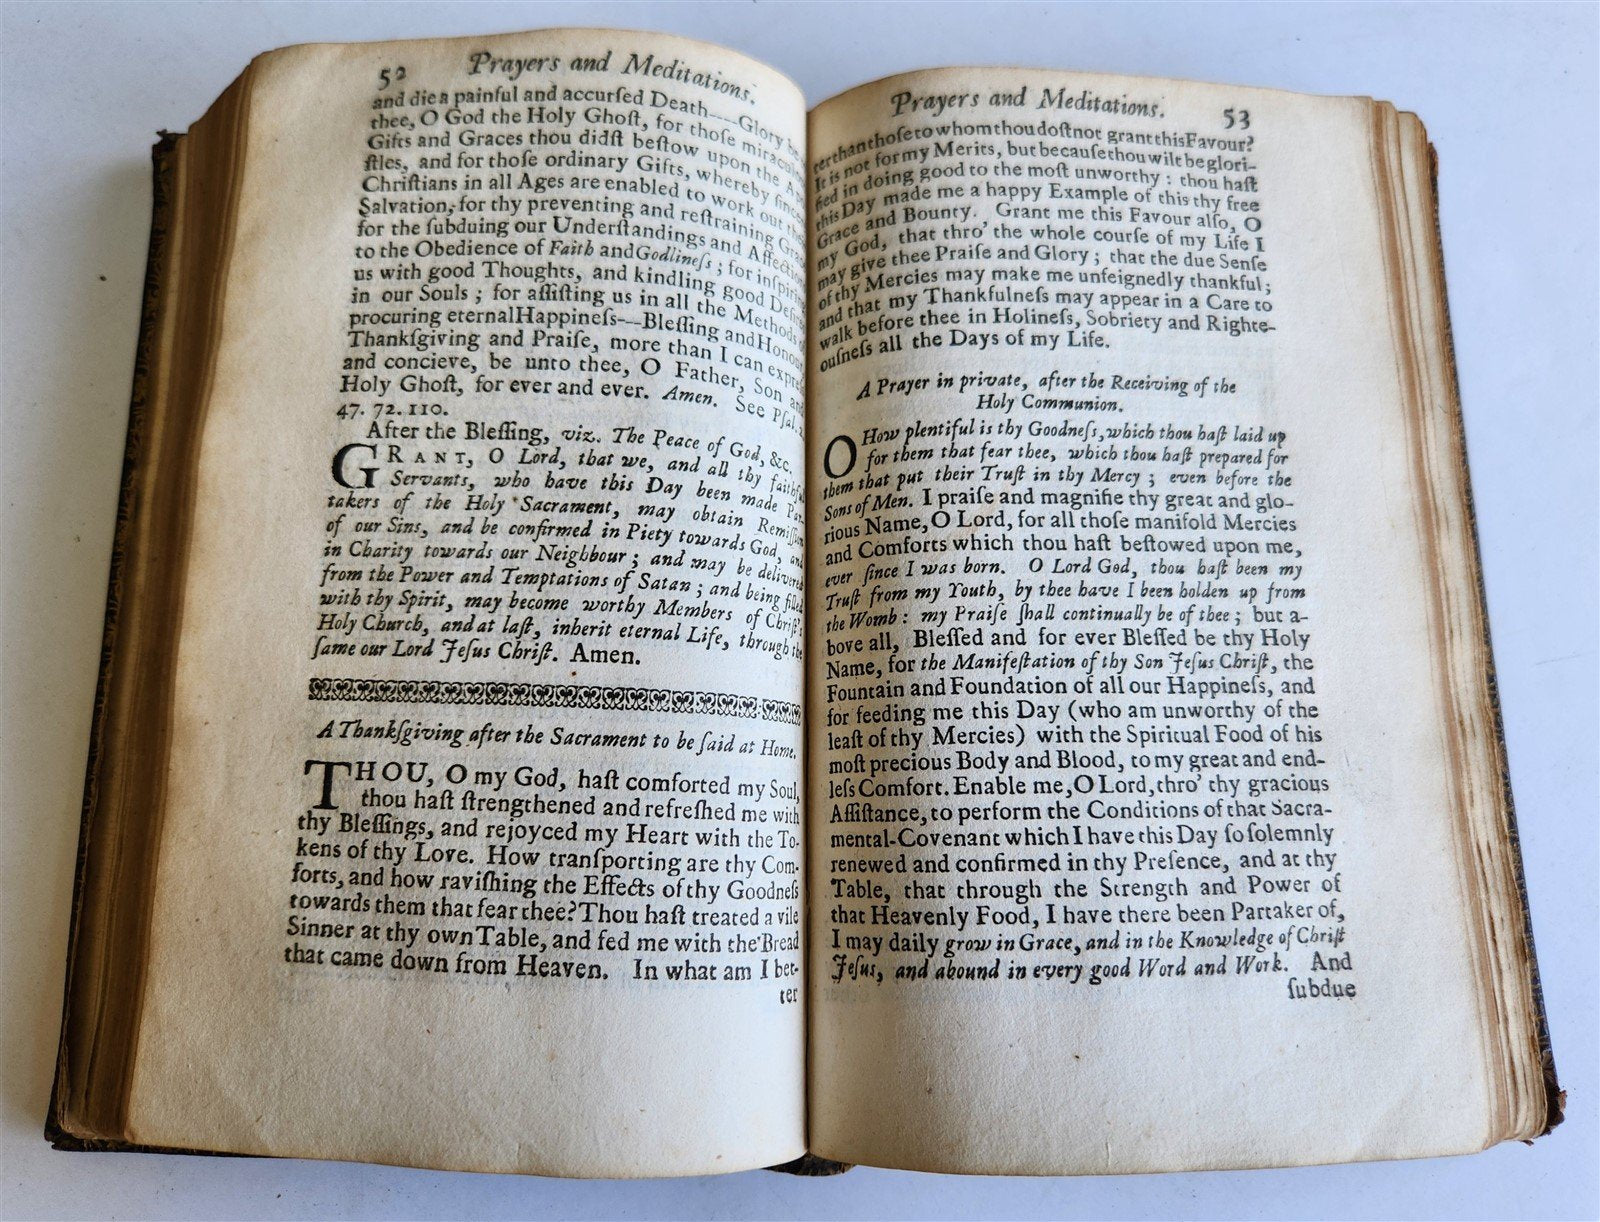 52 Prayers and Meditations.
and die a painful and accurſed Death----Glory be
thee, O God the Holy Ghoſt, for thoſe miraculous
Gifts and Graces thou didſt beſtow upon the
ſtles, and for thoſe ordinary Gifts, whereby ſincere
Chriſtians in all Ages are enabled to work out their
Salvation; for thy preventing and reſtraining Grace
for the ſubduing our Underſtandings and Affections
to the Obedience of Faith and Godlineſs; for inſpiring
us with good Thoughts, and kindling good Deſires
in our Souls; for aſſiſting us in all the Methods of
procuring eternal Happineſs---Bleſſing and Honour
Thankſgiving and Praiſe, more than I can expreſs
and concieve, be unto thee, O Father, Son and
Holy Ghoſt, for ever and ever. Amen. See Pſal.
47. 72. 110.
After the Bleſſing, viz. The Peace of God, &c.
GRANT, O Lord, that we, and all thy faithful
Servants, who have this Day been made Par-
takers of the Holy Sacrament, may obtain Remiſſion
of our Sins, and be confirmed in Piety towards God, and
in Charity towards our Neighbour; and may be delivered
from the Power and Temptations of Satan; and being filled
with thy Spirit, may become worthy Members of Chriſt's
Holy Church, and at laſt, inherit eternal Life, through the
ſame our Lord Jeſus Chriſt. Amen.
A Thankſgiving after the Sacrament to be ſaid at Home.
THOU, O my God, haſt comforted my Soul,
thou haſt ſtrengthened and refreſhed me with
thy Bleſſings, and rejoyced my Heart with the To-
kens of thy Love. How tranſporting are thy Com-
forts, and how raviſhing the Effects of thy Goodneſs
towards them that fear thee? Thou haſt treated a vile
Sinner at thy own Table, and fed me with the Bread
that came down from Heaven. In what am I bet-
ter
Prayers and Meditations. 53
ter than thoſe to whom thou doſt not grant this Favour?
It is not for my Merits, but becauſe thou wilt be glori-
fied in doing good to the moſt unworthy: thou haſt
this Day made me a happy Example of this thy free
Grace and Bounty. Grant me this Favour alſo, O
my God, that thro' the whole courſe of my Life I
may give thee Praiſe and Glory; that the due Senſe
of thy Mercies may make me unfeignedly thankful;
and that my Thankfulneſs may appear in a Care to
walk before thee in Holineſs, Sobriety and Righte-
ouſneſs all the Days of my Life.
A Prayer in private, after the Receiving of the
Holy Communion.
O How plentiful is thy Goodneſs, which thou haſt laid up
for them that fear thee, which thou haſt prepared for
them that put their Truſt in thy Mercy; even before the
Sons of Men. I praiſe and magnifie thy great and glo-
rious Name, O Lord, for all thoſe manifold Mercies
and Comforts which thou haſt beſtowed upon me,
ever ſince I was born. O Lord God, thou haſt been my
Truſt from my Youth, by thee have I been holden up from
the Womb: my Praiſe ſhall continually be of thee; but a-
bove all, Bleſſed and for ever Bleſſed be thy Holy
Name, for the Manifeſtation of thy Son Jeſus Chriſt, the
Fountain and Foundation of all our Happineſs, and
for feeding me this Day (who am unworthy of the
leaſt of thy Mercies) with the Spiritual Food of his
moſt precious Body and Blood, to my great and end-
leſs Comfort. Enable me, O Lord, thro' thy gracious
Aſſiſtance, to perform the Conditions of that Sacra-
mental-Covenant which I have this Day ſo ſolemnly
renewed and confirmed in thy Preſence, and at thy
Table, that through the Strength and Power of
that Heavenly Food, I have there been Partaker of,
I may daily grow in Grace, and in the Knowledge of Chriſt
Jeſus, and abound in every good Word and Work. And
ſubdue